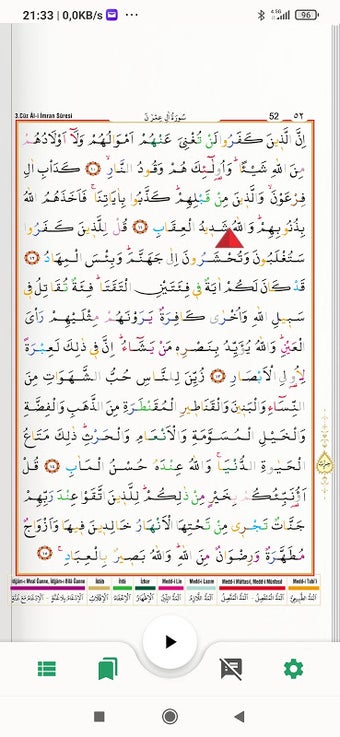 21:33 | 0,0KB/s ...
96
3.Cüz Âl-i İmran Sûresi
سُورَةُ اٰلِ عِمْرٰنَ
52 ٥٢
اِنَّ الَّذ۪ينَ كَفَرُوا لَنْ تُغْنِيَ عَنْهُمْ اَمْوَالُهُمْ وَلَٓا اَوْلَادُهُمْ
مِنَ اللّٰهِ شَيْـًٔاۜ وَاُو۬لٰٓئِكَ هُمْ وَقُودُ النَّارِۙ ﴿١٠﴾ كَدَأْبِ اٰلِ
فِرْعَوْنَۙ وَالَّذ۪ينَ مِنْ قَبْلِهِمْۜ كَذَّبُوا بِاٰيَاتِنَاۚ فَاَخَذَهُمُ اللّٰهُ
بِذُنُوبِهِمْۜ وَاللّٰهُ شَد۪يدُ الْعِقَابِ ﴿١١﴾ قُلْ لِلَّذ۪ينَ كَفَرُوا
سَتُغْلَبُونَ وَتُحْشَرُونَ اِلٰى جَهَنَّمَۜ وَبِئْسَ الْمِهَادُ ﴿١٢﴾
قَدْ كَانَ لَكُمْ اٰيَةٌ ف۪ي فِئَتَيْنِ الْتَقَتَاۜ فِئَةٌ تُقَاتِلُ ف۪ي
سَب۪يلِ اللّٰهِ وَاُخْرٰى كَافِرَةٌ يَرَوْنَهُمْ مِثْلَيْهِمْ رَأْيَ
الْعَيْنِۜ وَاللّٰهُ يُؤَيِّدُ بِنَصْرِه۪ مَنْ يَشَٓاءُۜ اِنَّ ف۪ي ذٰلِكَ لَعِبْرَةً
لِاُو۬لِي الْاَبْصَارِ ﴿١٣﴾ زُيِّنَ لِلنَّاسِ حُبُّ الشَّهَوَاتِ مِنَ
النِّسَٓاءِ وَالْبَن۪ينَ وَالْقَنَاط۪يرِ الْمُقَنْطَرَةِ مِنَ الذَّهَبِ وَالْفِضَّةِ
وَالْخَيْلِ الْمُسَوَّمَةِ وَالْاَنْعَامِ وَالْحَرْثِۜ ذٰلِكَ مَتَاعُ
الْحَيٰوةِ الدُّنْيَاۚ وَاللّٰهُ عِنْدَهُ حُسْنُ الْمَاٰبِ ﴿١٤﴾ قُلْ
اَؤُ۬نَبِّئُكُمْ بِخَيْرٍ مِنْ ذٰلِكُمْۜ لِلَّذ۪ينَ اتَّقَوْا عِنْدَ رَبِّهِمْ
جَنَّاتٌ تَجْر۪ي مِنْ تَحْتِهَا الْاَنْهَارُ خَالِد۪ينَ ف۪يهَا وَاَزْوَاجٌ
مُطَهَّرَةٌ وَرِضْوَانٌ مِنَ اللّٰهِۜ وَاللّٰهُ بَص۪يرٌ بِالْعِبَادِۚ ﴿١٥﴾
İdğam-ı Meal Ğunne, İdğam-ı Bilâ Ğunne İklâb İhfâ İzhar Medd-i Lin Medd-i Lazım Medd-i Muttasıl, Medd-i Munfasıl Medd-i Tabi'i